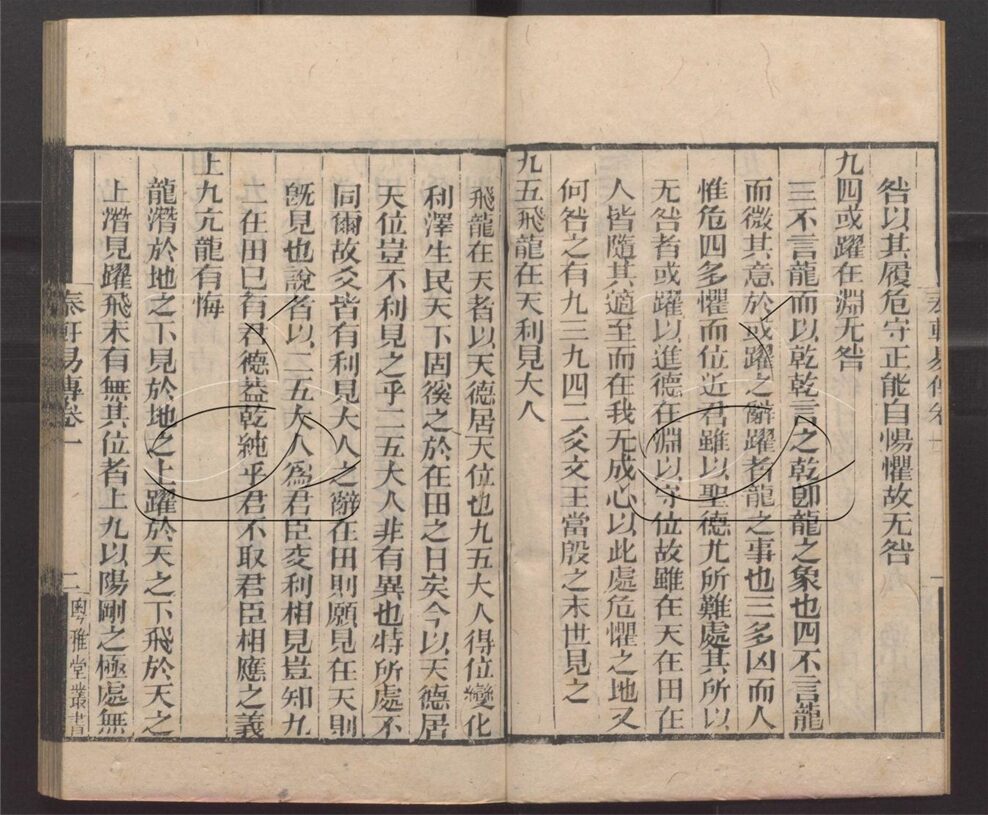 咎以其履危守正能自惕懼故无咎
九四或躍在淵无咎
三不言龍而以乾乾言之乾卽龍之象也四不言龍
而微其意於或躍之辭躍者龍之事也三多凶而人
惟危四多懼而位近君雖以聖德尤所難處其所以
无咎者或躍以進德在淵以守位故雖在天在田在
人皆隨其適至而在我无成心以此處危懼之地又
何咎之有九三九四二爻文王當殷之末世見之
九五飛龍在天利見大人
飛龍在天者以天德居天位也九五大人得位變化
利澤生民天下固徯之於在田之日矣今以天德居
天位豈不利見之乎二五大人非有異也特所處不
同爾故爻皆有利見大人之辭在田則願見在天則
旣見也說者以二五大人爲君臣交利相見豈知九
二在田已有君德益乾純乎君不取君臣相應之義
上九亢龍有悔
龍潛於地之下見於地之上躍於天之下飛於天之
上潛見躍飛未有無其位者上九以陽剛之極處無
泰軒易傳卷一
二
粵雅堂叢書